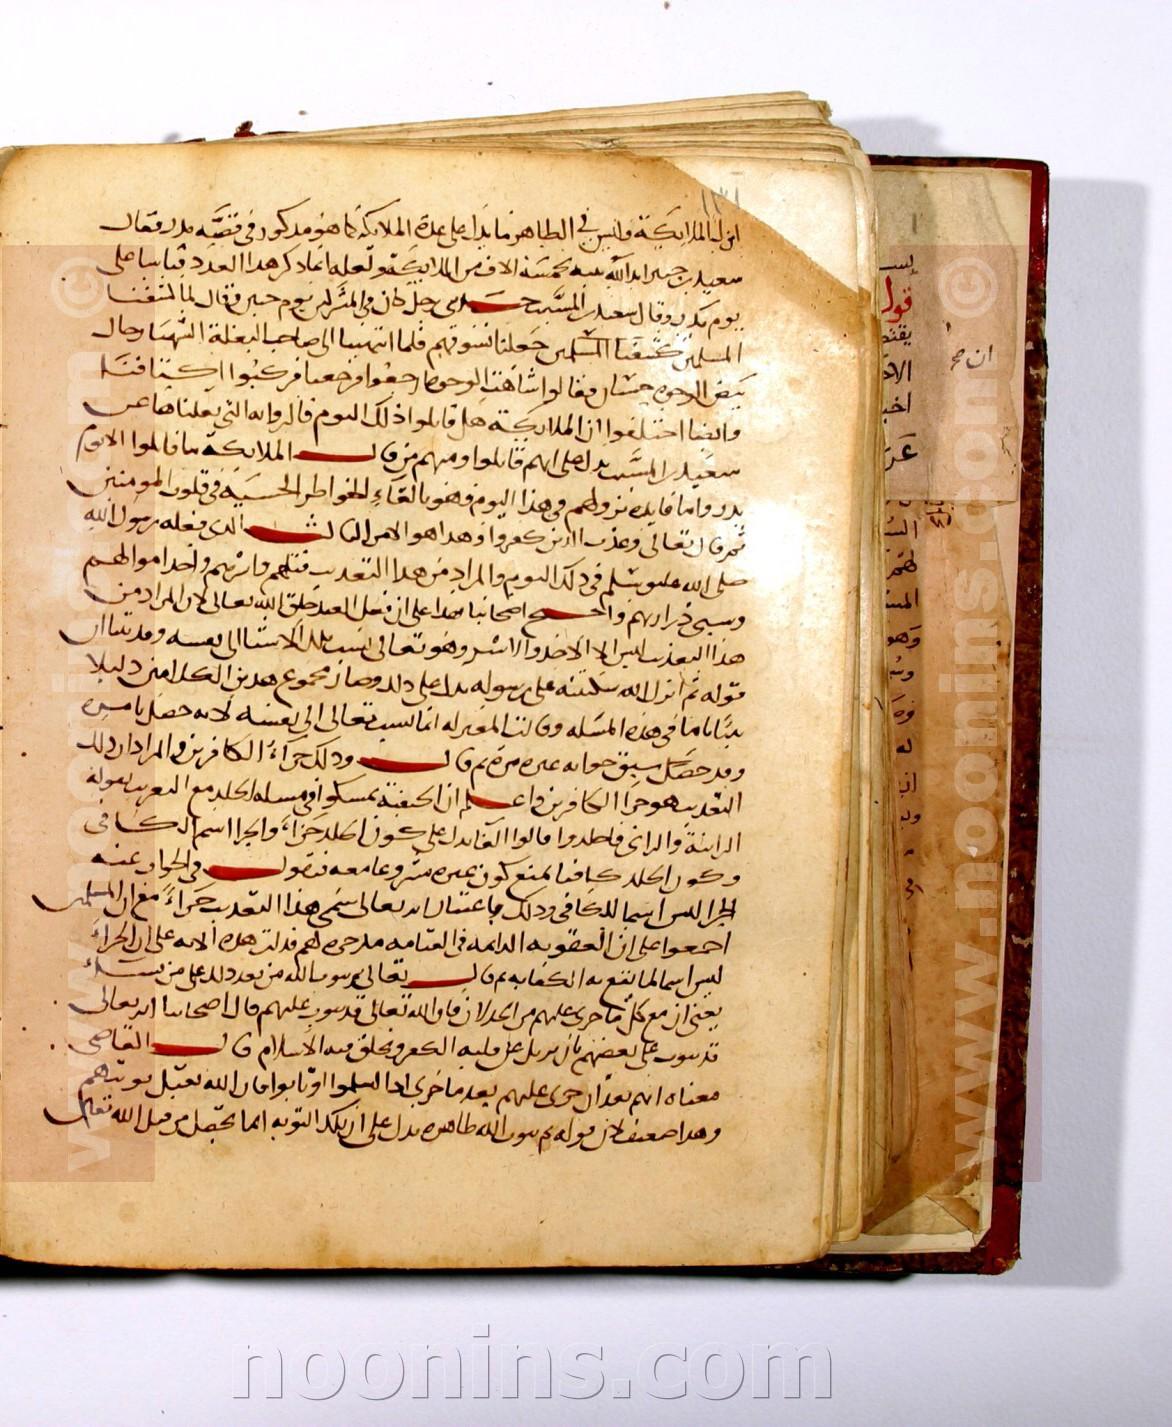 انزل الملايكة وليس في الظاهر ما يدل على عدة الملايكة كما هو مذكور في قصة بدر وقال
سعيد بن جبير ايد الله نبيه بخمسة الاف من الملايكة ولعله انما ذكر هذا العدد قياسا على
يوم بدر وقال سعيد بن المسيب حدثني رجل كان في المشركين يوم حنين قال لما كشفنا
المسلمين جعلنا نسوقهم فلما انتهينا الى صاحب البغلة الشهبا رجال
بيض الوجوه حسان فقالوا شاهت الوجوه ارجعوا فرجعنا فركبوا اكتافنا
وايضا اختلفوا ان الملايكة هل قاتلوا ذلك اليوم فالرواية التي نقلناها عن
سعيد بن المسيب يدل على انهم قاتلوا ومنهم من قال الملايكة ما قاتلوا الا يوم
بدر واما فايدة نزولهم في هذا اليوم فهو بالقاء الخواطر الحسنة في قلوب المومنين
ثم قال تعالى وعذب الذين كفروا وهذا هو الامر الثالث الذي فعله رسول الله
صلى الله عليه وسلم في ذلك اليوم والمراد من هذا التعذيب قتلهم واسرهم واخذ اموالهم
وسبي ذراريهم واحتج اصحابنا بهذا على ان فعل العبد خلق الله تعالى لان المراد من
هذا التعذيب ليس الا الاخذ والاسر وهو تعالى نسب تلك الاشيا الى نفسه وقد بينا ان
قوله ثم انزل الله سكينته على رسوله يدل على ذلك وصار مجموع هذين الكلامين دليلا
بينا ثابتا في هذه المسله وقالت المعتزله انما نسب تعالى الى نفسه لانه حصل بامره
وقد حصل سبق جوابه غير مرة ثم قال وذلك جزاء الكافرين والمراد ان ذلك
التعذيب هو جزا الكافرين واعلم ان الحنفية تمسكوا في مسله الجلد مع التعريب بقوله
الزانية والزاني فاجلدوا قالوا الفا يدل على كون الجلد جزاء والجزا اسم للكافي
وكون الجلد كافيا يمنع كون غيره مشروعا معه فنقول في الجواب عنه
الجزا ليس اسما للكافي وذلك باعتبار انه تعالى سمى هذا التعذيب جزاء مع ان المسلمين
اجمعوا على ان العقوبه الدايمه في القيامه مدخره لهم فدلت هذه الايه على ان الجزاء
ليس اسما لما يقع به الكفايه ثم قال تعالى ثم يتوب الله من بعد ذلك على من يشاء
يعني ان مع كل ما جرى عليهم من الخدلان فان الله تعالى قد يتوب عليهم قال اصحابنا انه تعالى
قد يتوب على بعضهم بان يزيل عن قلبه الكفر ويخلق فيه الاسلام قال القاضي
معناه انهم بعد ان جرى عليهم بعد ما جرى اذا اسلموا وتابوا فان الله يقبل توبتهم
وهذا ضعيف لان قوله ثم يتوب الله ظاهره يدل على ان تلك التوبه انما تحصل من قبل الله تعالى
ان صح
قول
www.noonins.com ©
www.noonins.com ©
noonins.com